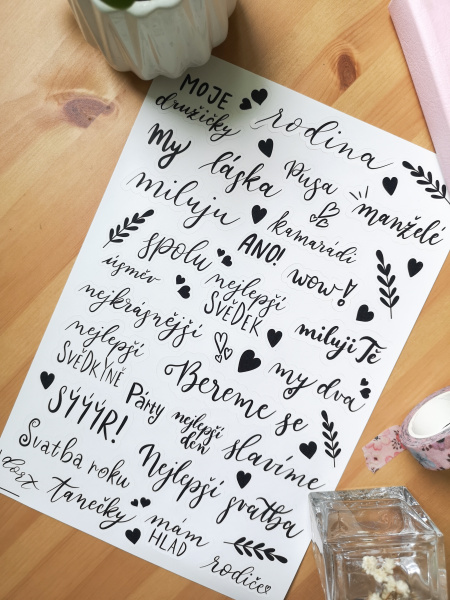 MOJE
družičky
rodina
My
láska
Pusa
manželé
miluju
kamarádi
ANO!
spolu
wow!
úsměv
nejlepší
SVĚDEK
nejkrásnější
miluji Tě
nejlepší
SVĚDKYNĚ
my dva
Bereme se
SÝÝÝR!
Párty
nejlepší
den
slavíme
Svatba roku
Nejlepší svatba
tanečky
mám
HLAD
rodiče